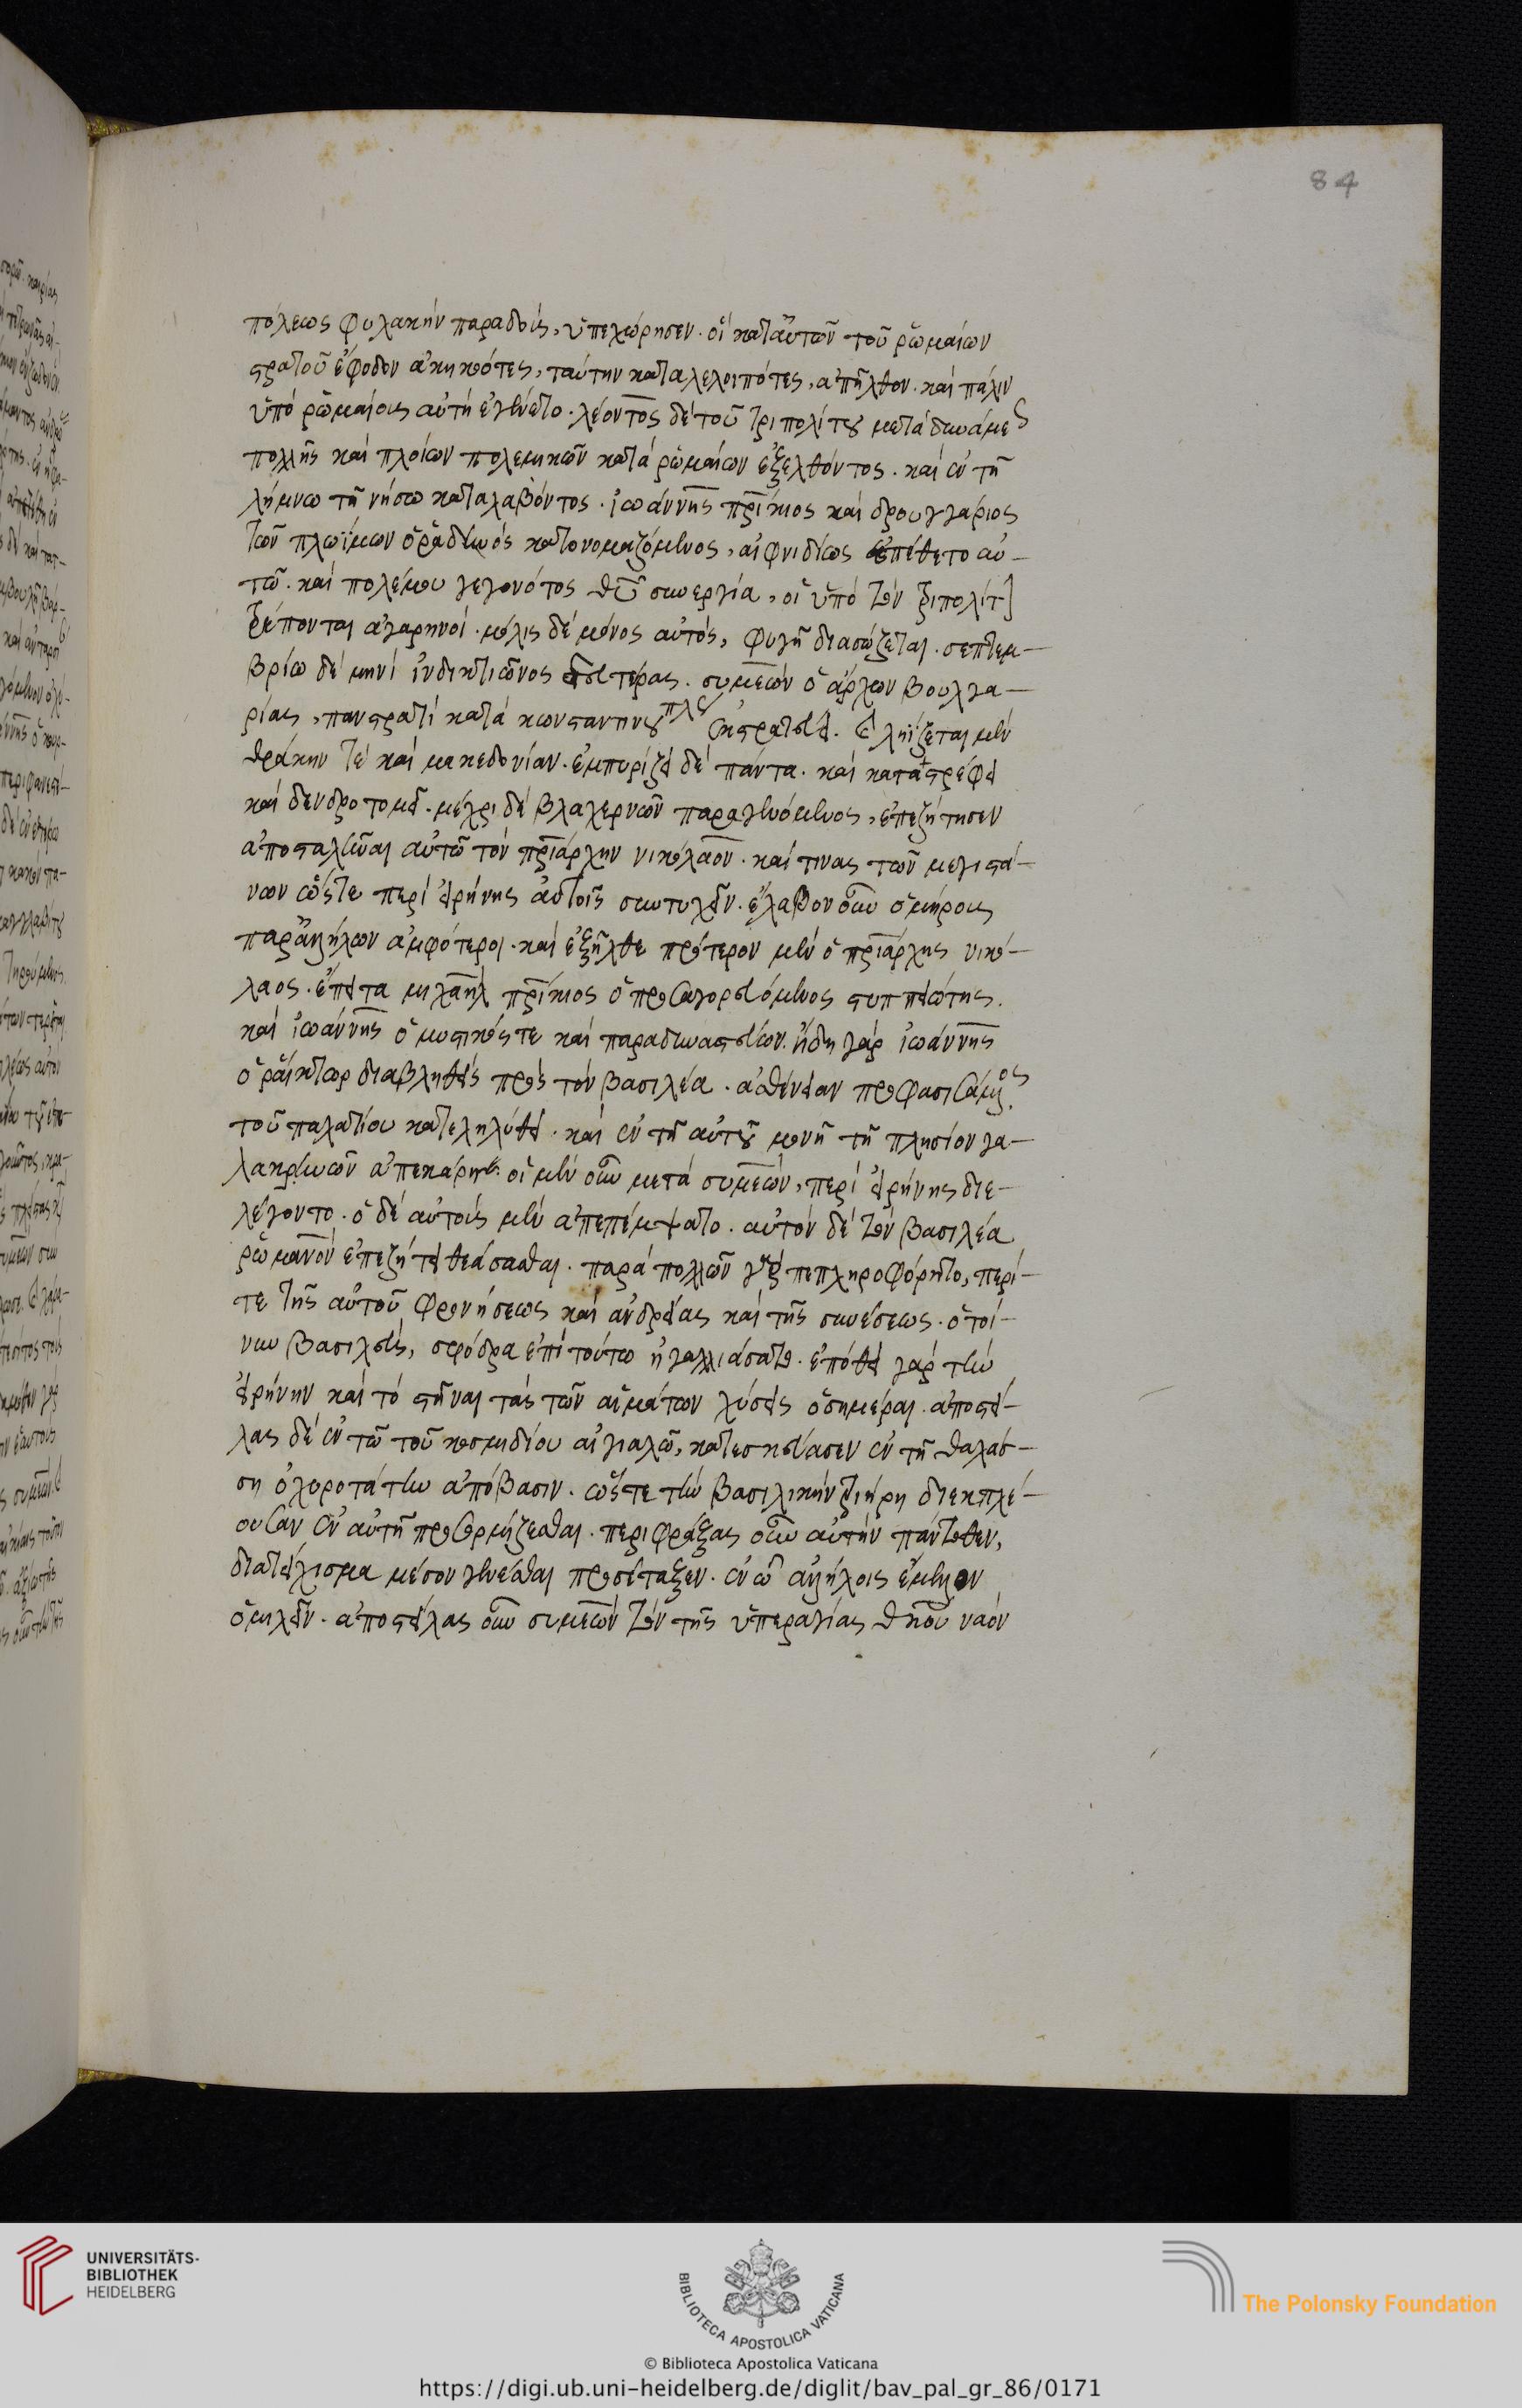 84
πόλεως φυλακὴν παραδοὺς, ὑπεχώρησεν. οἱ κατ' αὐτῶν τοῦ ῥωμαίων
στρατοῦ ἔφοδον ἀκηκοότες, ταύτην καταλελοιπότες, ἀπῆλθον. καὶ πάλιν
ὑπὸ ῥωμαίοις αὐτὴ ἐγένετο. λέοντος δὲ τοῦ τριπολίτου μετὰ δυνάμεως
πολλῆς καὶ πλοίων πολεμικῶν κατὰ ῥωμαίων ἐξελθόντος. καὶ ἐν τῇ
λήμνω τῇ νήσω καταλαβόντος. ἰωάννης πρίκιος καὶ δρουγγάριος
τῶν πλωΐμων ὁ ῥαδινὸς κατονομαζόμενος, αἰφνιδίως ἐπέθετο αὐ-
τῶ. καὶ πολέμου γεγονότος θυ συνεργία, οἱ ὑπὸ τὸν τριπολίτην
τρέπονται ἀγαρηνοί. μόλις δὲ μόνος αὐτὸς, φυγῇ διασώζεται. σεπτεμ-
βρίω δὲ μηνὶ ἰνδικτιῶνος δευτέρας. συμεὼν ὁ ἄρχων βουλγα-
ρίας, πανστρατὶ κατὰ κωνσταντινουπόλεως ἐκστρατεύει. καὶ ληΐζεται μὲν
θράκην τὲ καὶ μακεδονίαν. ἐμπυρίζει δὲ πάντα. καὶ καταστρέφει
καὶ δενδροτομεῖ. μέχρι δὲ βλαχερνῶν παραγενόμενος, ἐπεζήτησεν
ἀποσταλῆναι αὐτῶ τὸν πριάρχην νικόλαον. καί τινας τῶν μεγιστά-
νων ὥστε περὶ εἰρήνης αὐτοῖς συντυχεῖν. ἔλαβον οὖν ὁμήρους
παρ' ἀλλήλων ἀμφότεροι. καὶ ἐξῆλθε πρότερον μὲν ὁ πριάρχης νικό-
λαος. ἔπειτα μιχαὴλ πρίκιος ὁ προσαγορευόμενος στυππειώτης.
καὶ ἰωάννης ὁ μυστικός τε καὶ παραδυναστεύων. ἤδη γὰρ ἰωάννης
ὁ ῥαίκτωρ διαβληθεὶς πρὸς τὸν βασιλέα. ἀσθένειαν προφασισάμενος
τοῦ παλατίου κατεληλύθει. καὶ ἐν τῇ αὐτοῦ μονῇ τῇ πλησίον γα-
λακρηνῶν ἀπεκάρη. οἱ μὲν οὖν μετὰ συμεὼν, περὶ εἰρήνης διε-
λέγοντο. ὁ δὲ αὐτοὺς μὲν ἀπεπέμψατο. αὐτὸν δὲ τὸν βασιλέα
ῥωμανὸν ἐπεζήτει θεάσασθαι. παρὰ πολλῶν γὰρ πεπληροφόρητο, περί-
τε τῆς αὐτοῦ φρονήσεως καὶ ἀνδρείας καὶ τῆς συνέσεως. ὁ τοί-
νυν βασιλεὺς, σφόδρα ἐπὶ τούτω ἠγαλλιάσατο. ἐπόθει γὰρ τὴν
εἰρήνην καὶ τὸ στῆναι τὰς τῶν αἱμάτων χύσεις ὁσημέραι. ἀποστεί-
λας δὲ ἐν τῶ τοῦ κοσμιδίου αἰγιαλῶ, κατεσκεύασεν ἐν τῇ θαλάσ-
ση ὀχυροτάτην ἀπόβασιν. ὥστε τὴν βασιλικὴν τριήρη διεκπλέ-
ουσαν ἐν αὐτῇ προσορμίζεσθαι. περιφράξας οὖν αὐτὴν πάντοθεν,
διατείχισμα μέσον γενέσθαι προσέταξεν. ἐν ὧ ἀλλήλοις ἔμελλον
ὁμιλεῖν. ἀποστείλας οὖν συμεὼν τὸν τῆς ὑπεραγίας θκου ναὸν
UNIVERSITÄTS-
BIBLIOTHEK
HEIDELBERG
BIBLIOTECA APOSTOLICA VATICANA
The Polonsky Foundation
© Biblioteca Apostolica Vaticana
https://digi.ub.uni-heidelberg.de/diglit/bav_pal_gr_86/0171